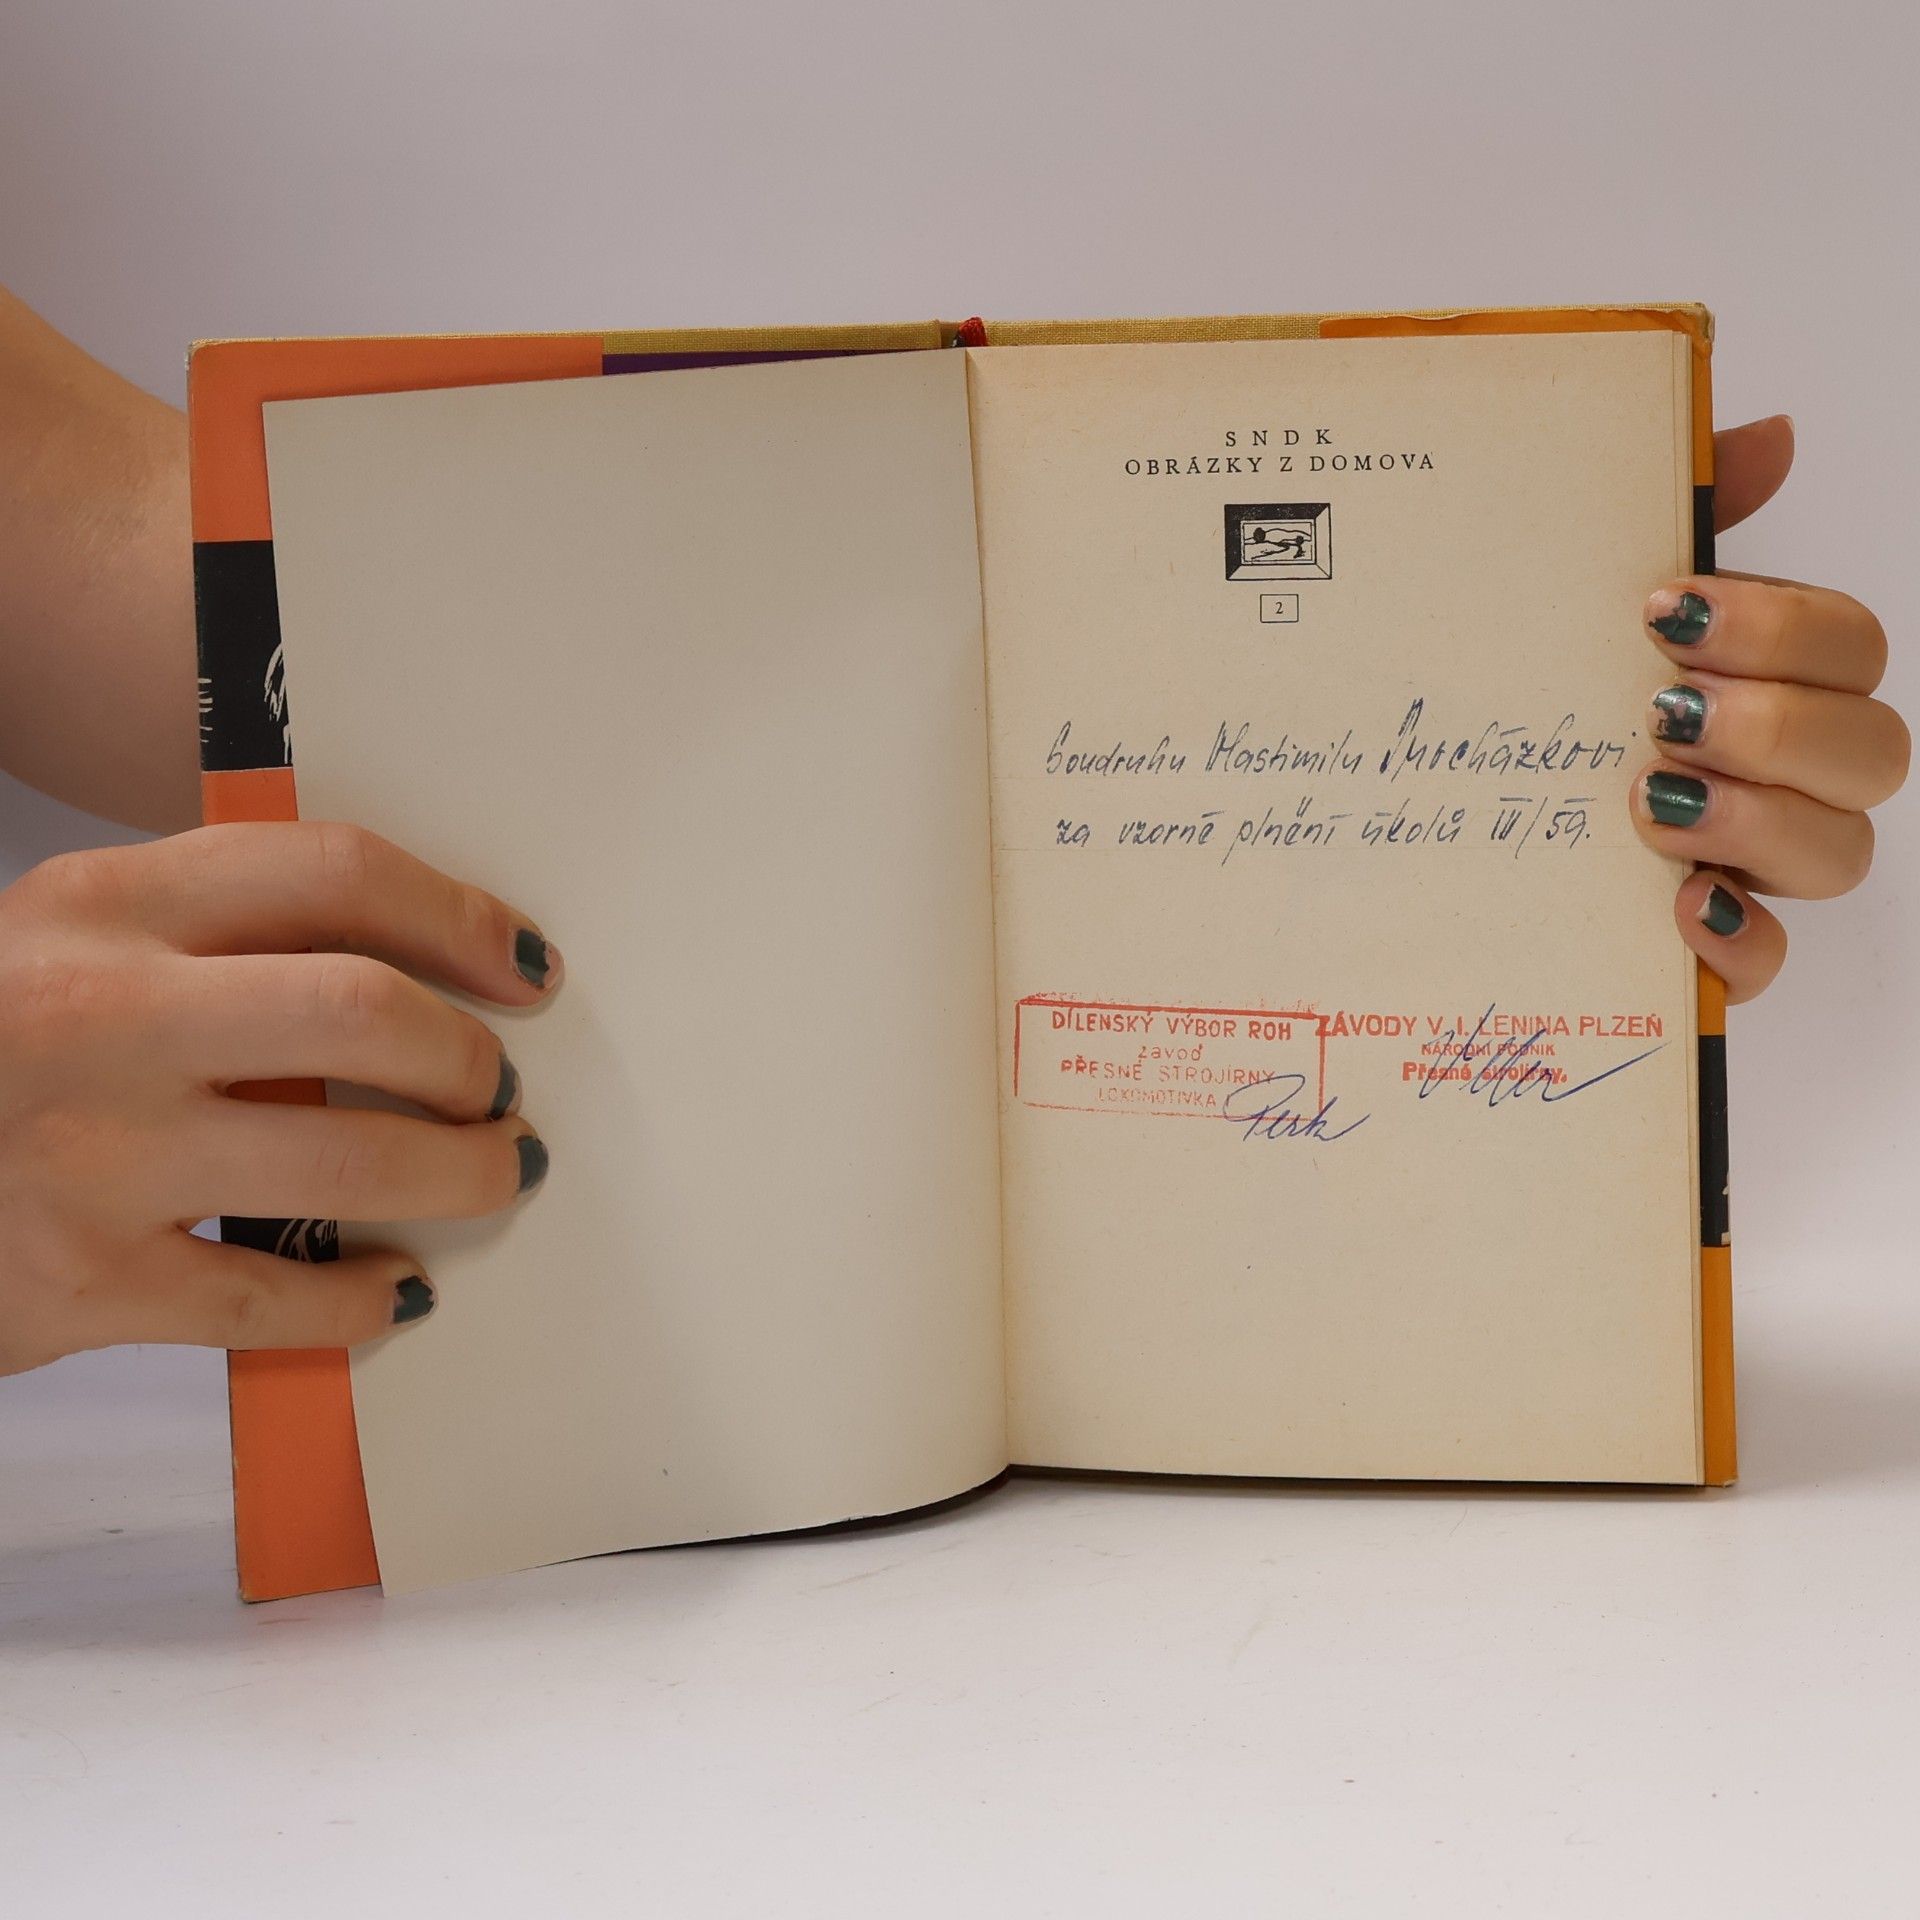 SNDK
OBRÁZKY Z DOMOVA
2
Soudruhu Vlastimilu Procházkovi
za vzorné plnění úkolů III/59.
DÍLENSKÝ VÝBOR ROH
závod
PŘESNÉ STROJÍRNY
LOKOMOTIVKA
ZÁVODY V. I. LENINA PLZEŇ
NÁRODNÍ PODNIK
Přesné strojírny.